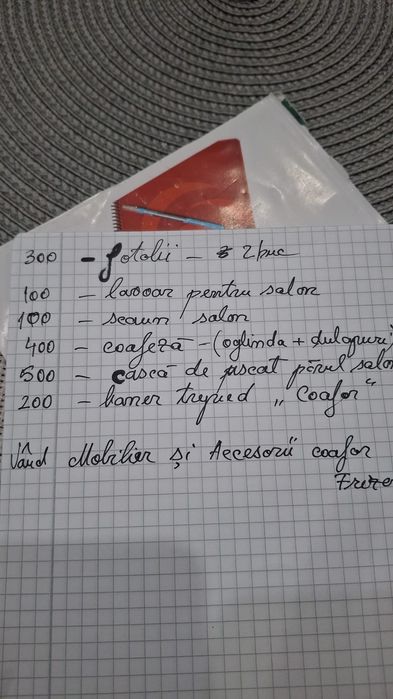 300 - fotolii - 2 buc
100 - lavoar pentru salon
100 - scaun salon
400 - coafeză - (oglinda + dulapuri)
500 - cască de uscat părul salon
200 - baner trepied „Coafor"
Vând Mobilier și Accesorii coafor